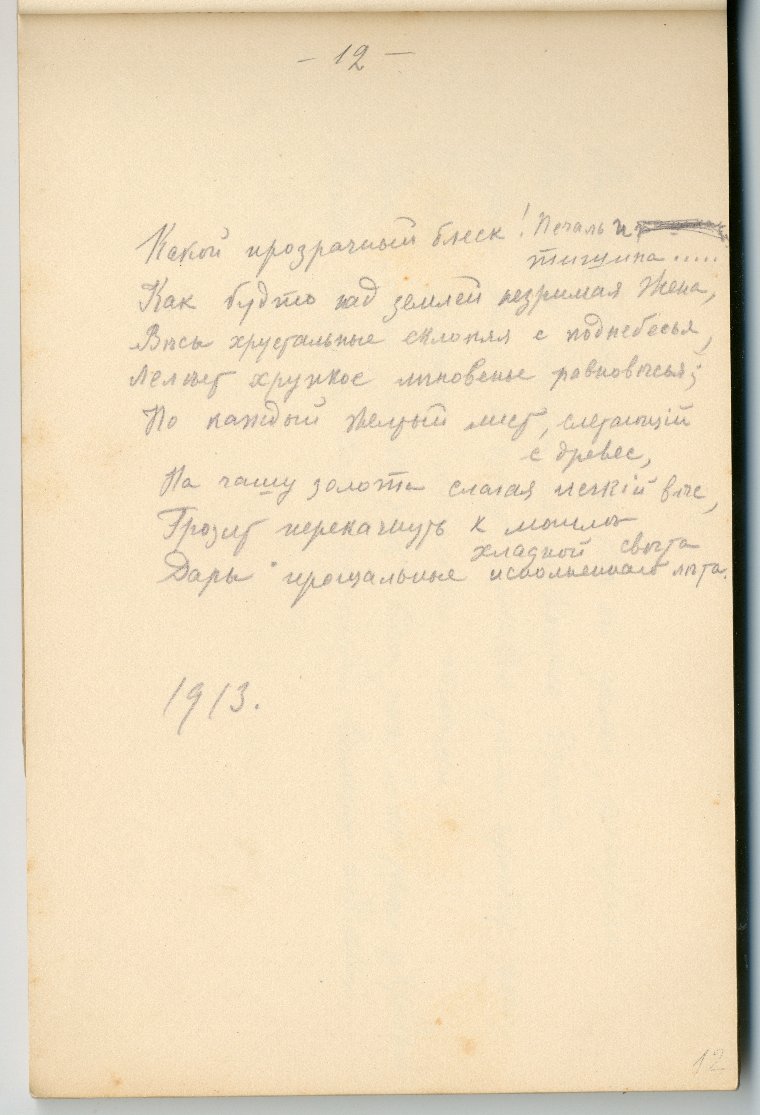 - 12 -
Какой прозрачный блеск! Печаль и
тишина .....
Как будто над землей незримая Жена,
Вѣсы хрустальные склоняя с поднебесья,
Лелѣет хрупкое мгновенье равновѣсья;
Но каждый желтый лист, слетающій
с древес,
На чашу золота слагая легкій вѣс,
Грозит перекачнуть к могилѣ
хладной свѣта
Дары прощальные исполненнаго лѣта.
1913.
12